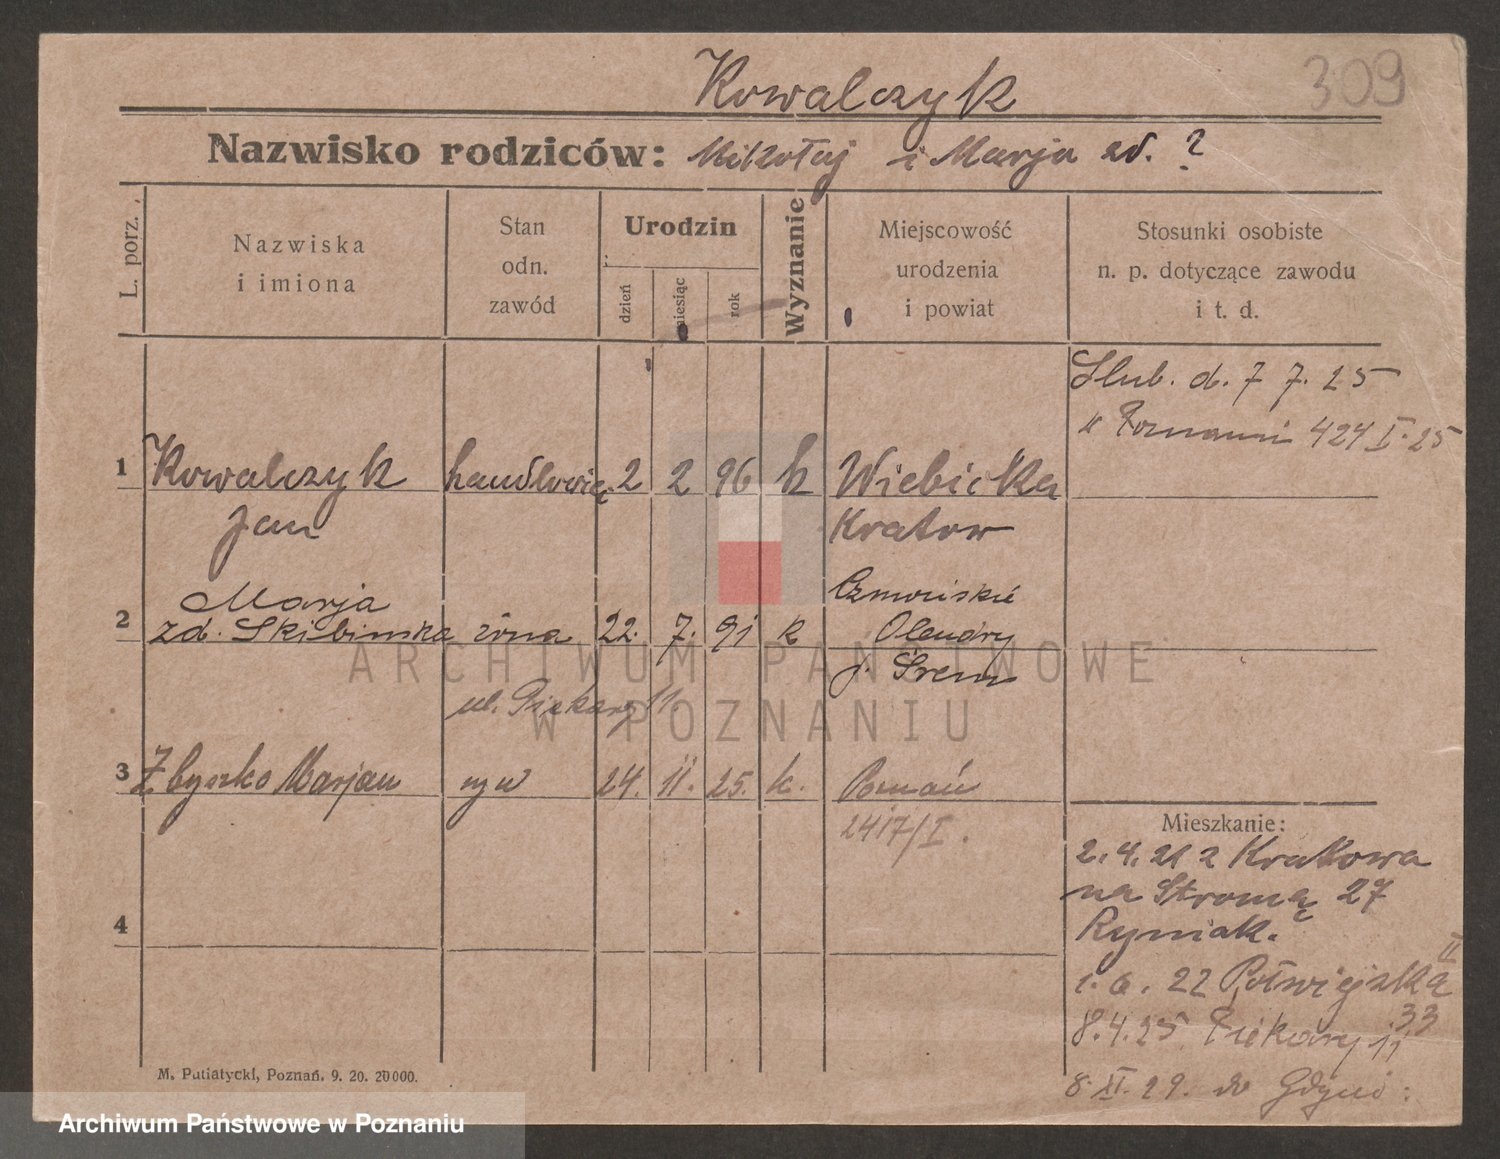 Kowalczyk
309
Nazwisko rodziców: Mikołaj i Marja zd. ?
L. porz.
Nazwiska
i imiona
Stan
odn.
zawód
Urodzin
dzień
miesiąc
rok
Wyznanie
Miejscowość
urodzenia
i powiat
Stosunki osobiste
n. p. dotyczące zawodu
i t. d.
Slub. d. 7 7. 25
w Poznaniu 424 I. 25
1 Kowalczyk handlowiec 2 2 96 k Wiebicka
Jan Kratow
2 Marja
zd. Skibinska żona 22. 7. 91 k
Olendry
p. Śrem
ul. Piekary 11
3 Zbyszko Marjan syn 24. 11. 25. k. Poznań
2417/I.
4
Mieszkanie:
2. 4. 21 z Krakowa
na Stromą 27
Ryniak.
1. 6. 22 Półwiejska II
33
8. 4. 25 Piekary 11
8. XI. 29. do Gdyni:
M. Putiatycki, Poznań. 9. 20. 20000.
ARCHIWUM PAŃSTWOWE
W POZNANIU
Archiwum Państwowe w Poznaniu